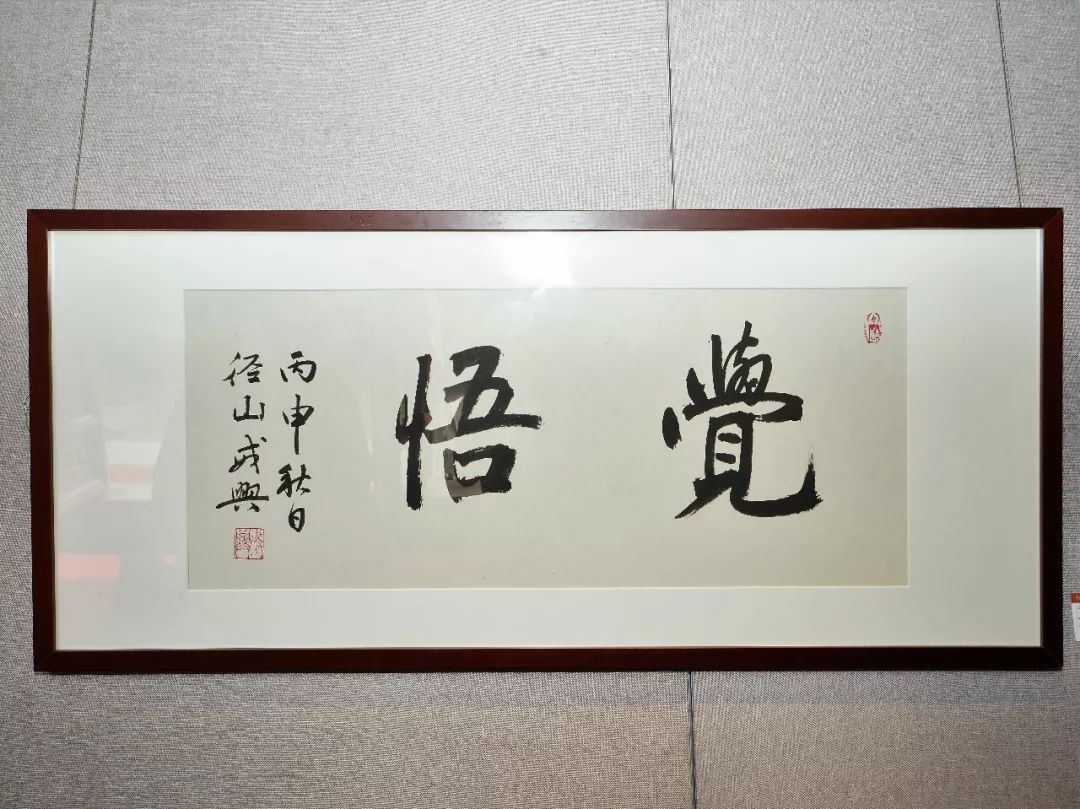 覺悟
丙申秋日
径山戒興